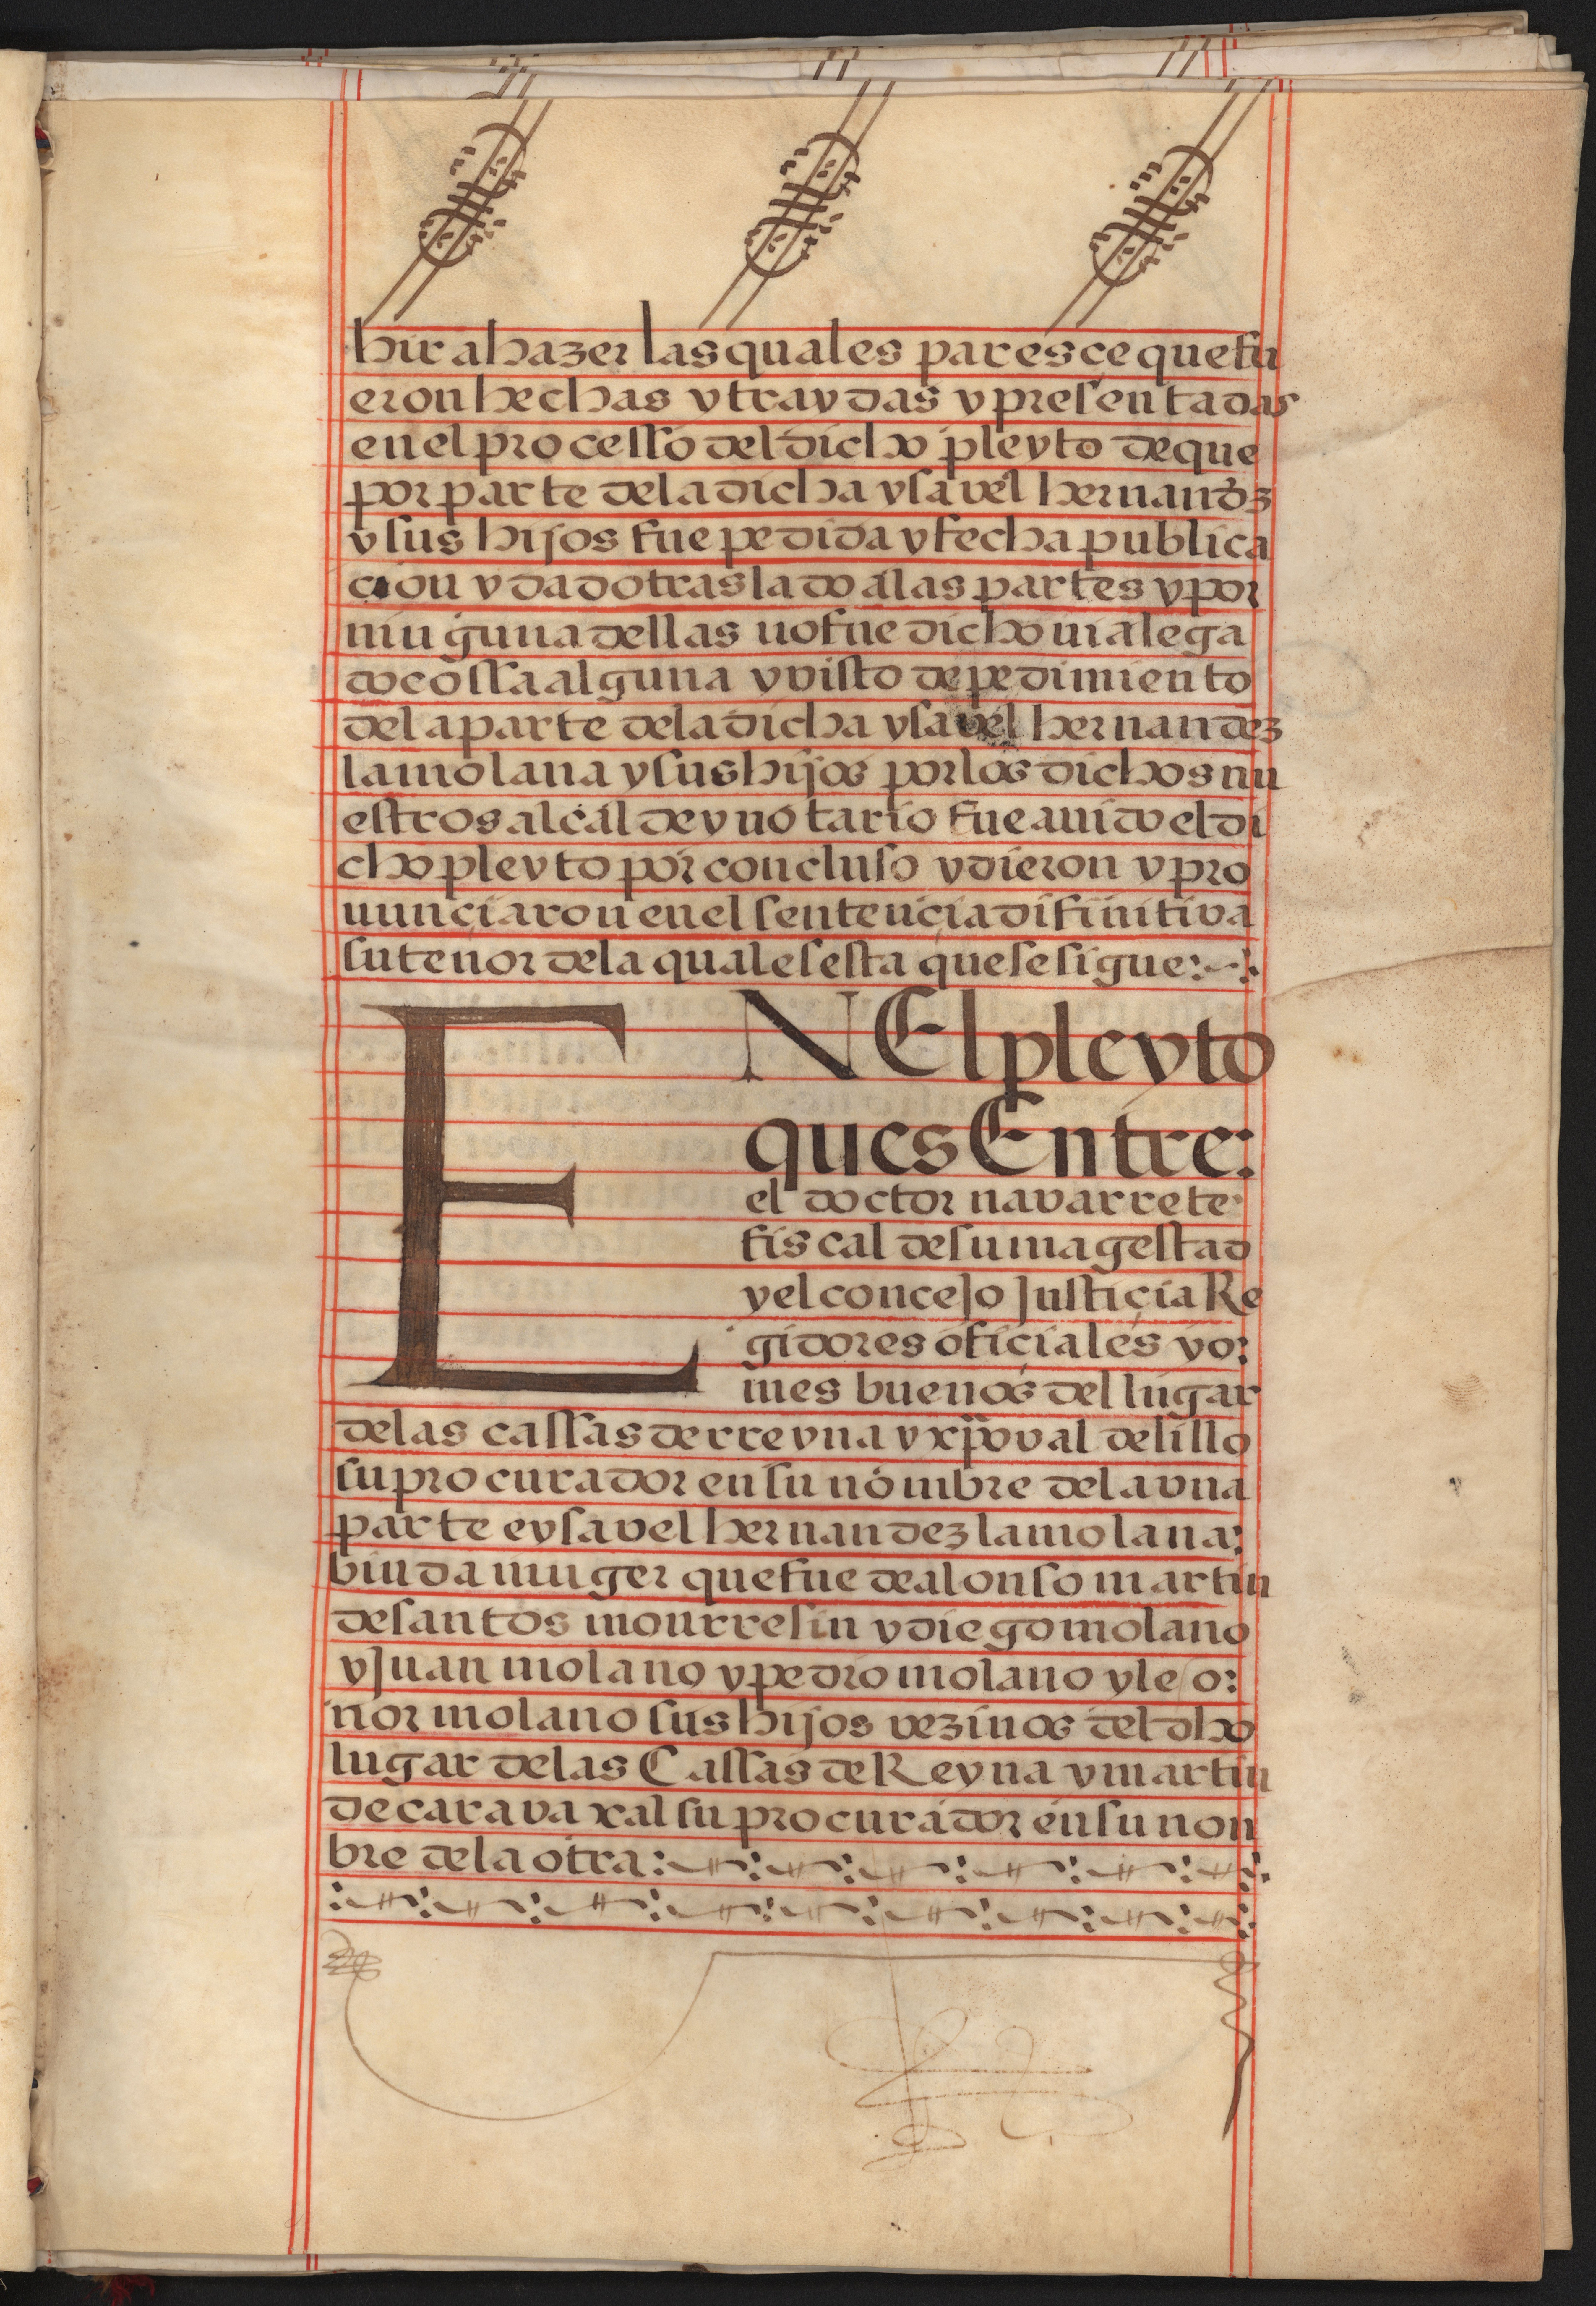 hir a hazer las quales paresce que fu
eron hechas y traydas y presentadas
en el processo del dicho pleyto de que
por parte dela dicha ysavel hernandz
y sus hijos fue pedida y fecha publica
cion y dado traslado a las partes y por
ninguna dellas no fue dicho ni alega
do cossa alguna y visto de pedimiento
dela parte dela dicha ysavel hernandez
la molana y sus hijos por los dichos nu
estros alcalde y notario fue avido el di
cho pleyto por concluso y dieron y pro
nunciaron en el sentencia difinitiva
su tenor dela qual es esta que se sigue:~:
EN El pleyto
ques Entre:
el doctor navarrete
fiscal de su magestad
y el concejo Justicia Re
gidores oficiales yo:
mes buenos del lugar
delas cassas de rreyna y xpoval delillo
su procurador en su nombre dela vna
parte e ysavel hernandez la molana:
biuda muger que fue de alonso martin
de santos monrresin y diego molano
y Juan molano y pedro molano y leo:
nor molano sus hijos vezinos del dho
lugar delas Cassas de Reyna y martin
de caravaxal su procurador en su non
bre dela otra: